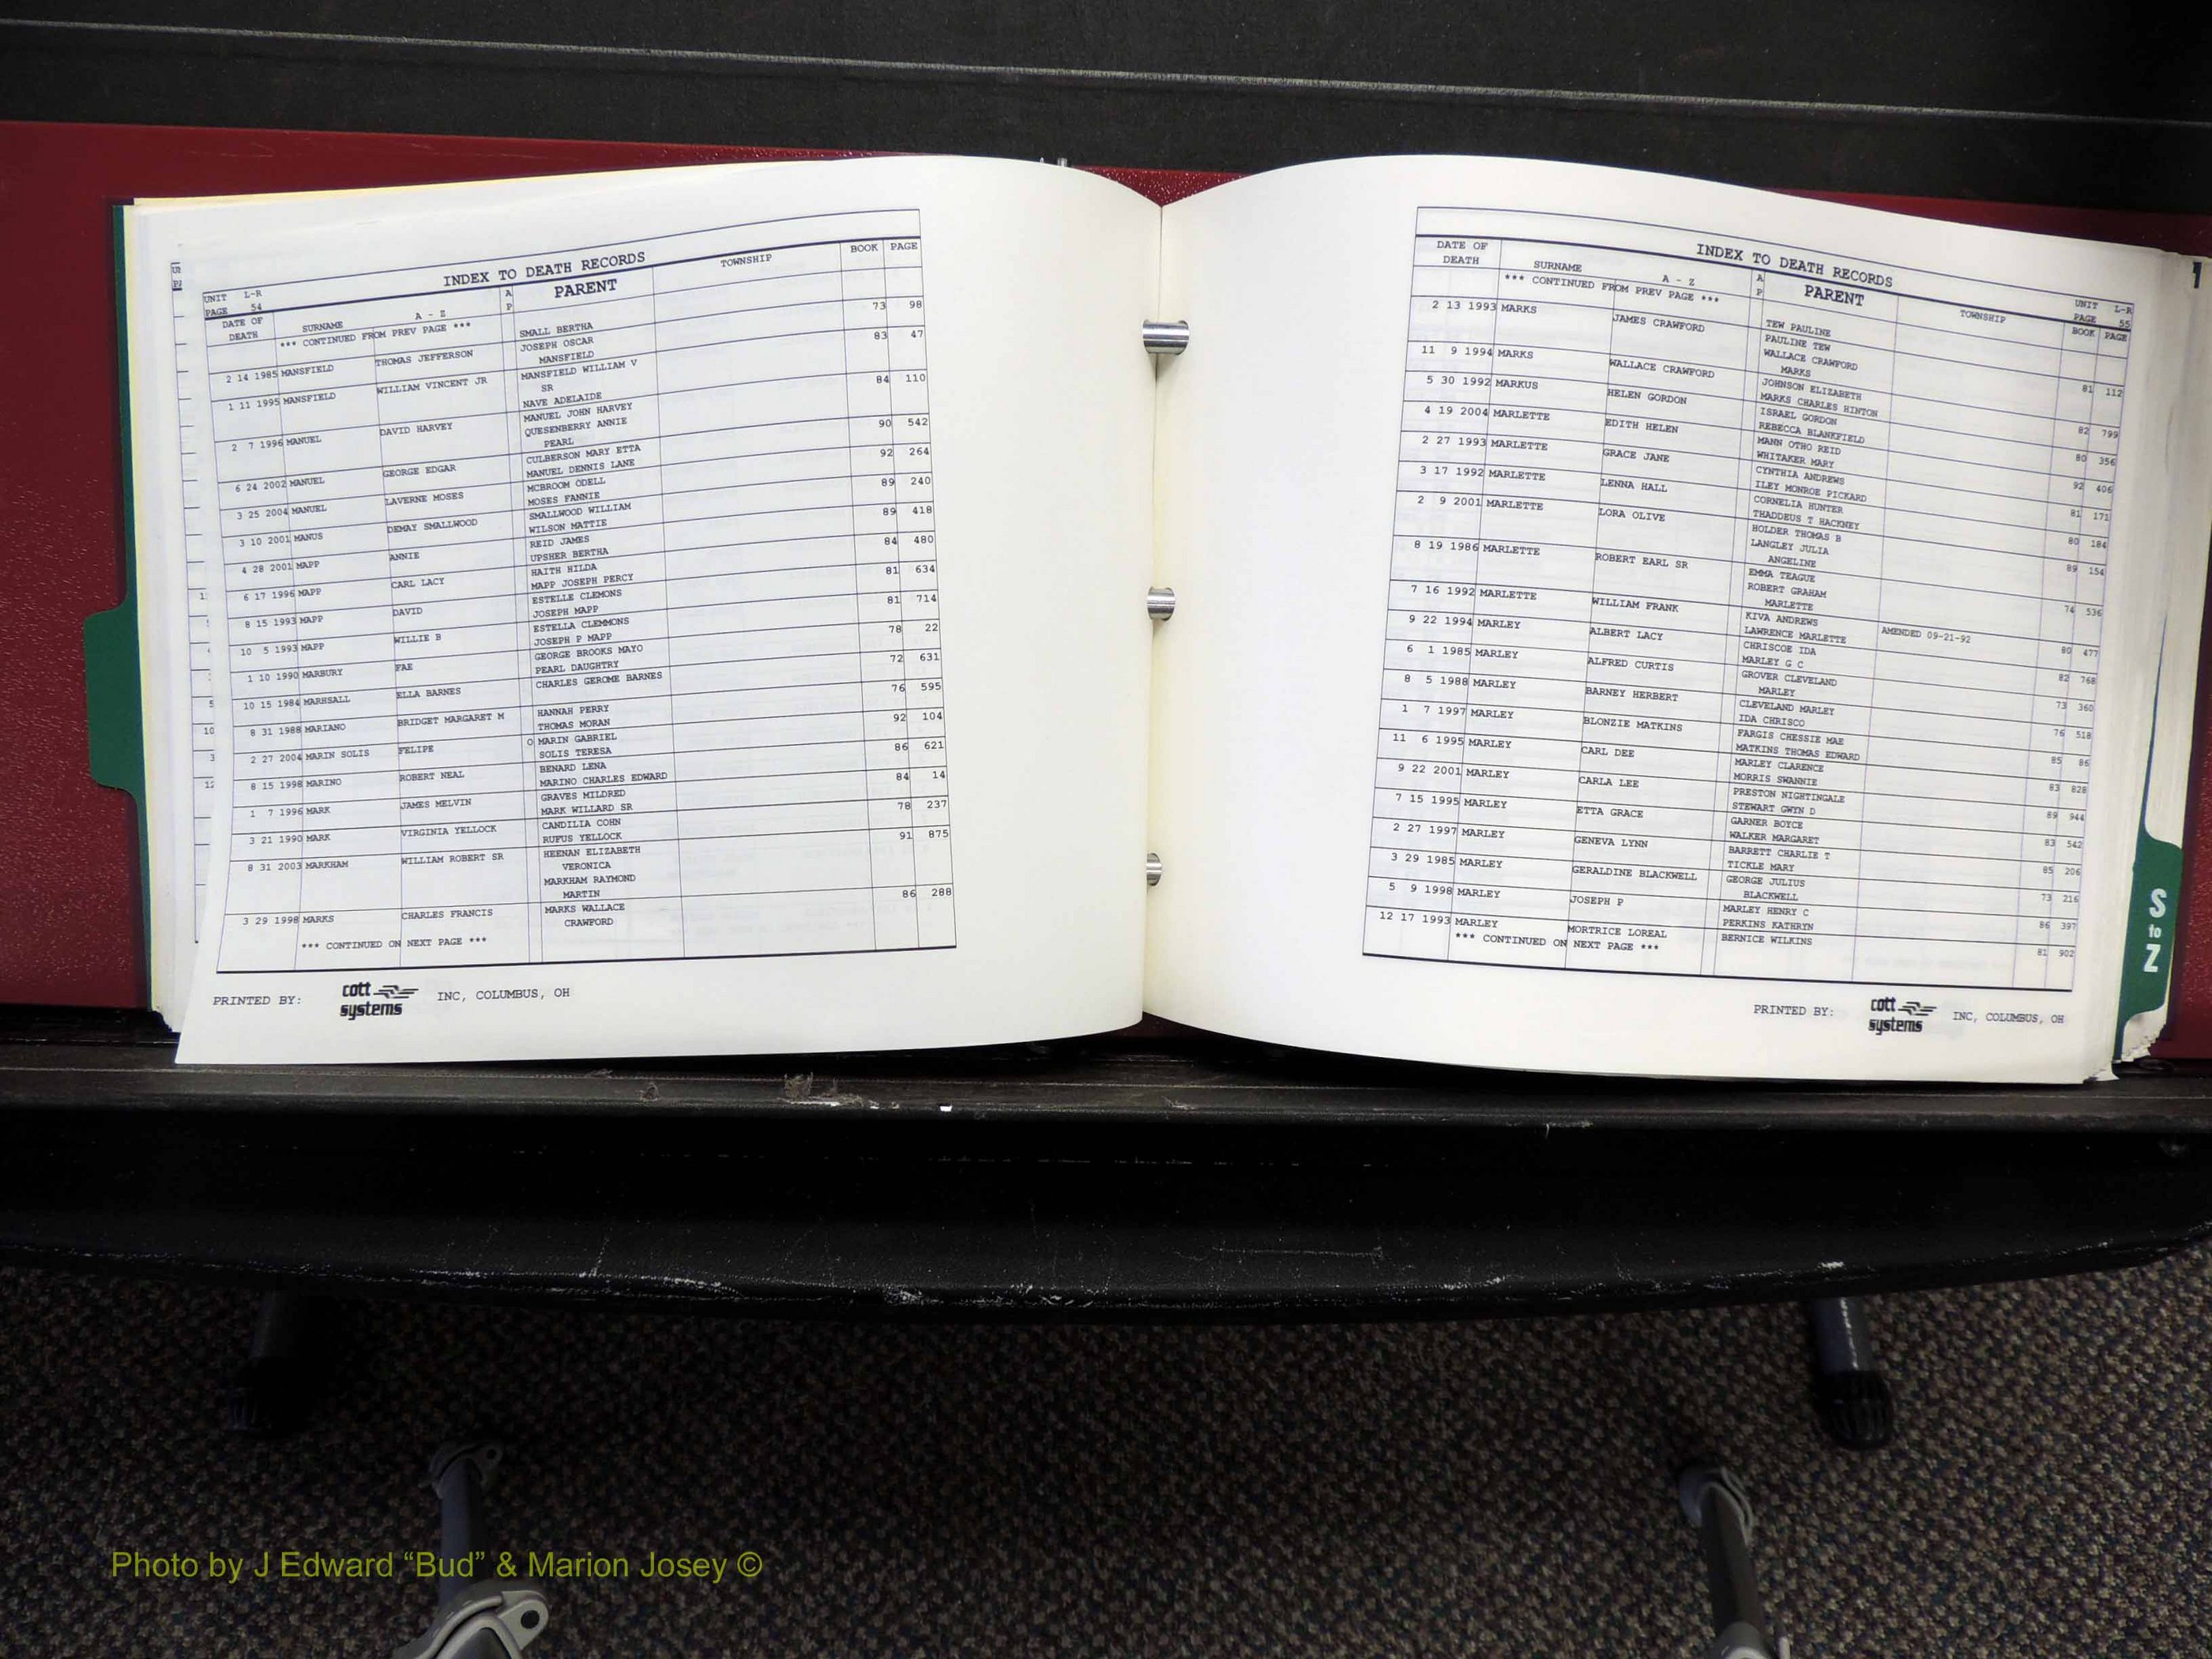 INDEX TO DEATH RECORDS
UNIT L-R
PAGE 54
DATE OF DEATH SURNAME A - Z A P PARENT TOWNSHIP BOOK PAGE
*** CONTINUED FROM PREV PAGE ***
SMALL BERTHA
2 14 1985 MANSFIELD THOMAS JEFFERSON JOSEPH OSCAR 73 98
MANSFIELD
1 11 1995 MANSFIELD WILLIAM VINCENT JR MANSFIELD WILLIAM V 83 47
SR
NAVE ADELAIDE
2 7 1996 MANUEL DAVID HARVEY MANUEL JOHN HARVEY 84 110
QUESENBERRY ANNIE
PEARL
6 24 2002 MANUEL GEORGE EDGAR CULBERSON MARY ETTA 90 542
MANUEL DENNIS LANE
3 25 2004 MANUEL LAVERNE MOSES MCBROOM ODELL 92 264
MOSES FANNIE
3 10 2001 MANUS DEMAY SMALLWOOD SMALLWOOD WILLIAM 89 240
WILSON MATTIE
4 28 2001 MAPP ANNIE REID JAMES 89 418
UPSHER BERTHA
6 17 1996 MAPP CARL LACY HAITH HILDA 84 480
MAPP JOSEPH PERCY
8 15 1993 MAPP DAVID ESTELLE CLEMONS 81 634
JOSEPH MAPP
10 5 1993 MAPP WILLIE B ESTELLA CLEMMONS 81 714
JOSEPH P MAPP
1 10 1990 MARBURY FAE GEORGE BROOKS MAYO 78 22
PEARL DAUGHTRY
10 15 1984 MARHSALL ELLA BARNES CHARLES GEROME BARNES 72 631
8 31 1988 MARIANO BRIDGET MARGARET M HANNAH PERRY 76 595
THOMAS MORAN
2 27 2004 MARIN SOLIS FELIPE O MARIN GABRIEL 92 104
SOLIS TERESA
8 15 1998 MARINO ROBERT NEAL BENARD LENA 86 621
MARINO CHARLES EDWARD
1 7 1996 MARK JAMES MELVIN GRAVES MILDRED 84 14
MARK WILLARD SR
3 21 1990 MARK VIRGINIA YELLOCK CANDILIA COHN 78 237
RUFUS YELLOCK
8 31 2003 MARKHAM WILLIAM ROBERT SR HEENAN ELIZABETH 91 875
VERONICA
MARKHAM RAYMOND
MARTIN
3 29 1998 MARKS CHARLES FRANCIS MARKS WALLACE 86 288
CRAWFORD
*** CONTINUED ON NEXT PAGE ***
PRINTED BY: cott systems INC, COLUMBUS, OH
INDEX TO DEATH RECORDS
UNIT L-R
PAGE 55
DATE OF DEATH SURNAME A - Z A P PARENT TOWNSHIP BOOK PAGE
*** CONTINUED FROM PREV PAGE ***
TEW PAULINE
2 13 1993 MARKS JAMES CRAWFORD PAULINE TEW 81 112
WALLACE CRAWFORD
MARKS
11 9 1994 MARKS WALLACE CRAWFORD JOHNSON ELIZABETH 82 799
MARKS CHARLES HINTON
5 30 1992 MARKUS HELEN GORDON ISRAEL GORDON 80 356
REBECCA BLANKFIELD
4 19 2004 MARLETTE EDITH HELEN MANN OTHO REID 92 406
WHITAKER MARY
2 27 1993 MARLETTE GRACE JANE CYNTHIA ANDREWS 81 171
ILEY MONROE PICKARD
3 17 1992 MARLETTE LENNA HALL CORNELIA HUNTER 80 184
THADDEUS T HACKNEY
2 9 2001 MARLETTE LORA OLIVE HOLDER THOMAS B 89 154
LANGLEY JULIA
ANGELINE
8 19 1986 MARLETTE ROBERT EARL SR EMMA TEAGUE 74 536
ROBERT GRAHAM
MARLETTE
7 16 1992 MARLETTE WILLIAM FRANK KIVA ANDREWS AMENDED 09-21-92 80 477
LAWRENCE MARLETTE
9 22 1994 MARLEY ALBERT LACY CHRISCOE IDA 82 768
MARLEY G C
6 1 1985 MARLEY ALFRED CURTIS GROVER CLEVELAND 73 360
MARLEY
8 5 1988 MARLEY BARNEY HERBERT CLEVELAND MARLEY 76 518
IDA CHRISCO
1 7 1997 MARLEY BLONZIE MATKINS FARGIS CHESSIE MAE 85 86
MATKINS THOMAS EDWARD
11 6 1995 MARLEY CARL DEE MARLEY CLARENCE 83 828
MORRIS SWANNIE
9 22 2001 MARLEY CARLA LEE PRESTON NIGHTINGALE 89 944
STEWART GWYN D
7 15 1995 MARLEY ETTA GRACE GARNER BOYCE 83 542
WALKER MARGARET
2 27 1997 MARLEY GENEVA LYNN BARRETT CHARLIE T 85 206
TICKLE MARY
3 29 1985 MARLEY GERALDINE BLACKWELL GEORGE JULIUS 73 216
BLACKWELL
5 9 1998 MARLEY JOSEPH P MARLEY HENRY C 86 397
PERKINS KATHRYN
12 17 1993 MARLEY MORTRICE LOREAL BERNICE WILKINS 81 902
*** CONTINUED ON NEXT PAGE ***
PRINTED BY: cott systems INC, COLUMBUS, OH
S
to
Z
Photo by J Edward “Bud” & Marion Josey ©